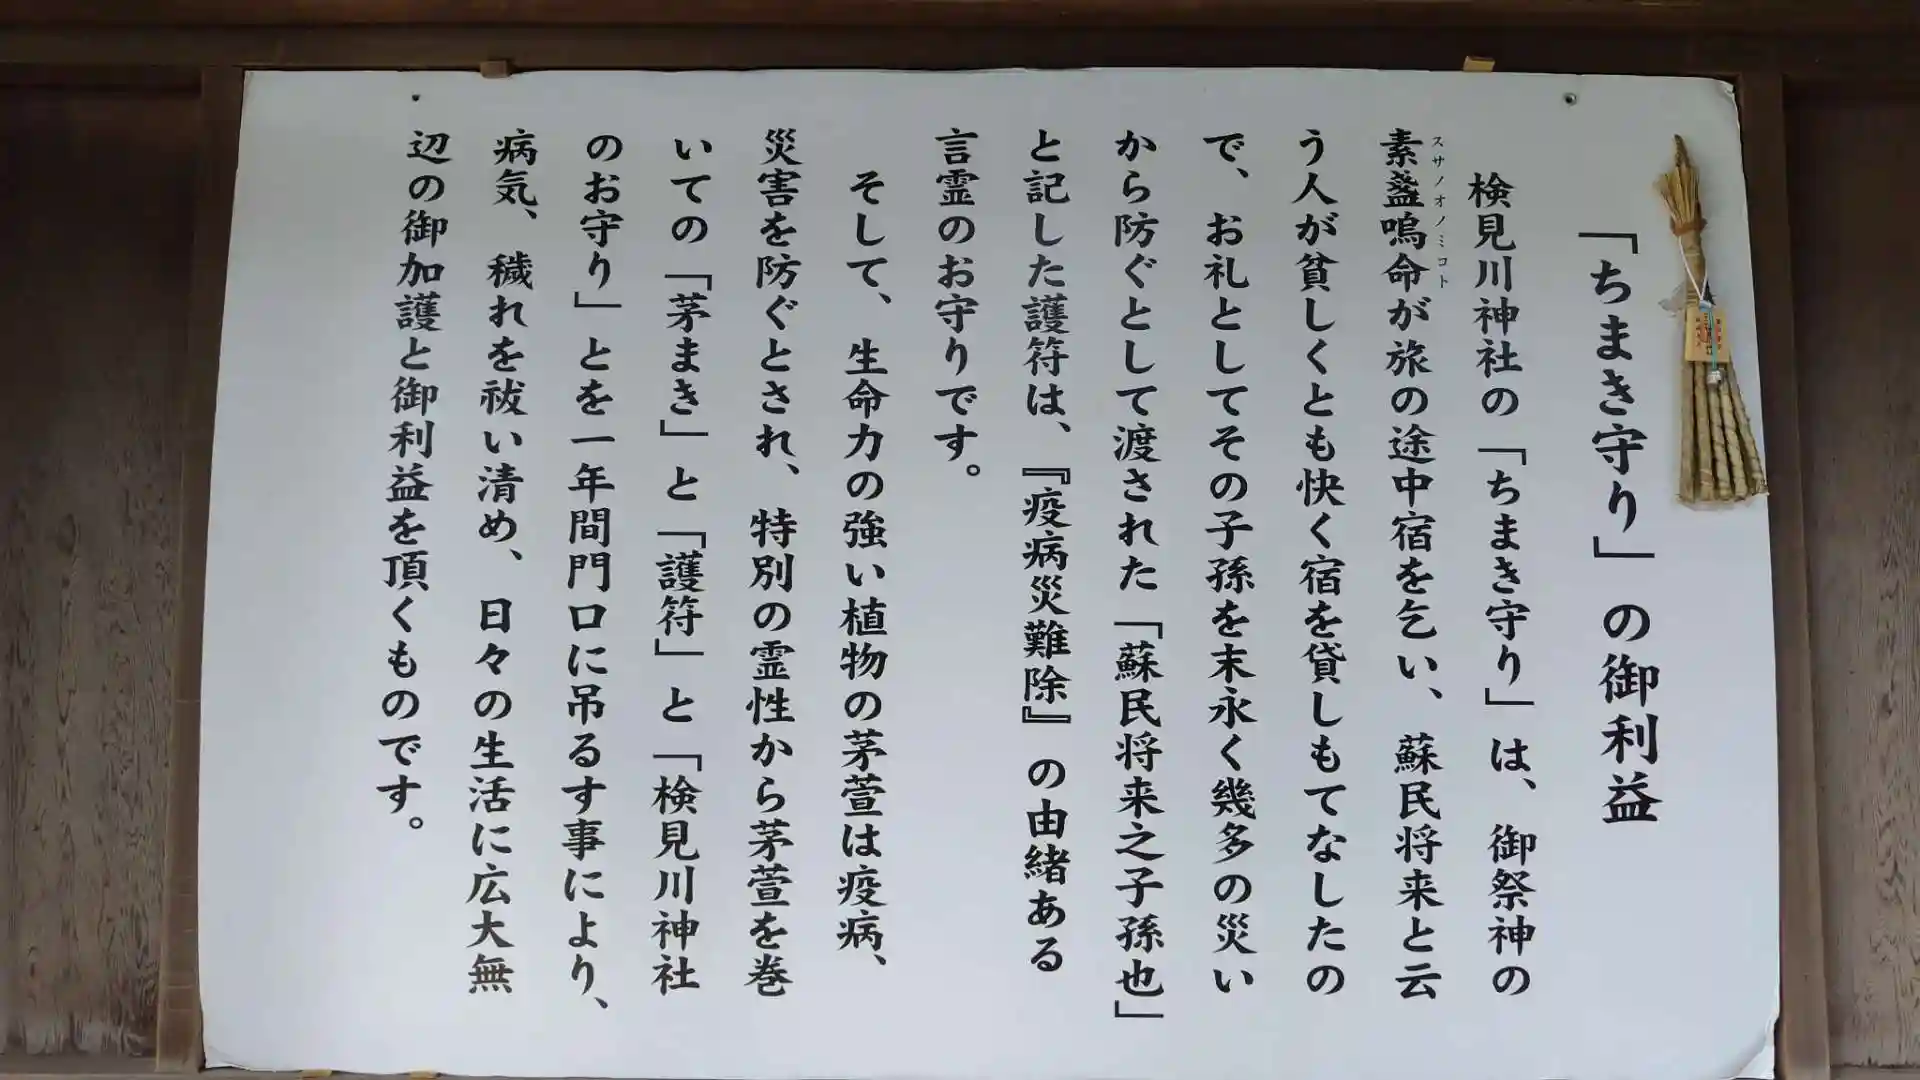 「ちまき守り」の御利益
検見川神社の「ちまき守り」は、御祭神の
素盞嗚命が旅の途中宿を乞い、蘇民将来と云
スサノオノミコト
う人が貧しくとも快く宿を貸しもてなしたの
で、お礼としてその子孫を末永く幾多の災い
から防ぐとして渡された「蘇民将来之子孫也」
と記した護符は、『疫病災難除』の由緒ある
言霊のお守りです。
そして、生命力の強い植物の茅萱は疫病、
災害を防ぐとされ、特別の霊性から茅萱を巻
いての「茅まき」と「護符」と「検見川神社
のお守り」とを一年間門口に吊るす事により、
病気、穢れを祓い清め、日々の生活に広大無
辺の御加護と御利益を頂くものです。